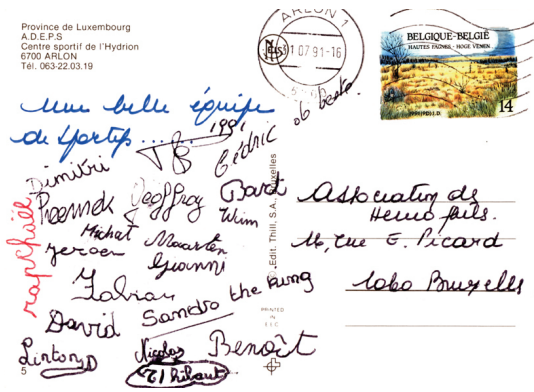 Province de Luxembourg
A.D.E.P.S
Centre sportif de l'Hydrion
6700 ARLON
Tél. 063-22.03.19
ARLON 1
1 07 91-16
BELGIQUE-BELGIË
HAUTES FAGNES - HOGE VENEN
14
Une belle équipe
de sportifs......
1991
Cédric
Dimitri
Geoffroy
Bart
Wim
Michat
Maarten
Jeroen
Gianni
raphaël
Fabian
Sandro the King
David
Linton D
Nicolas
Benoît
Thibaut
5
Edit. Thill, S.A., Bruxelles
PRINTED
IN
EEC
Association de
Hemophils.
16, rue E. Picard
1060 Bruxelles